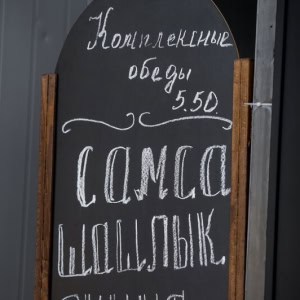 Комплексные
обеды
5.50.
САМСА
ШАШЛЫК